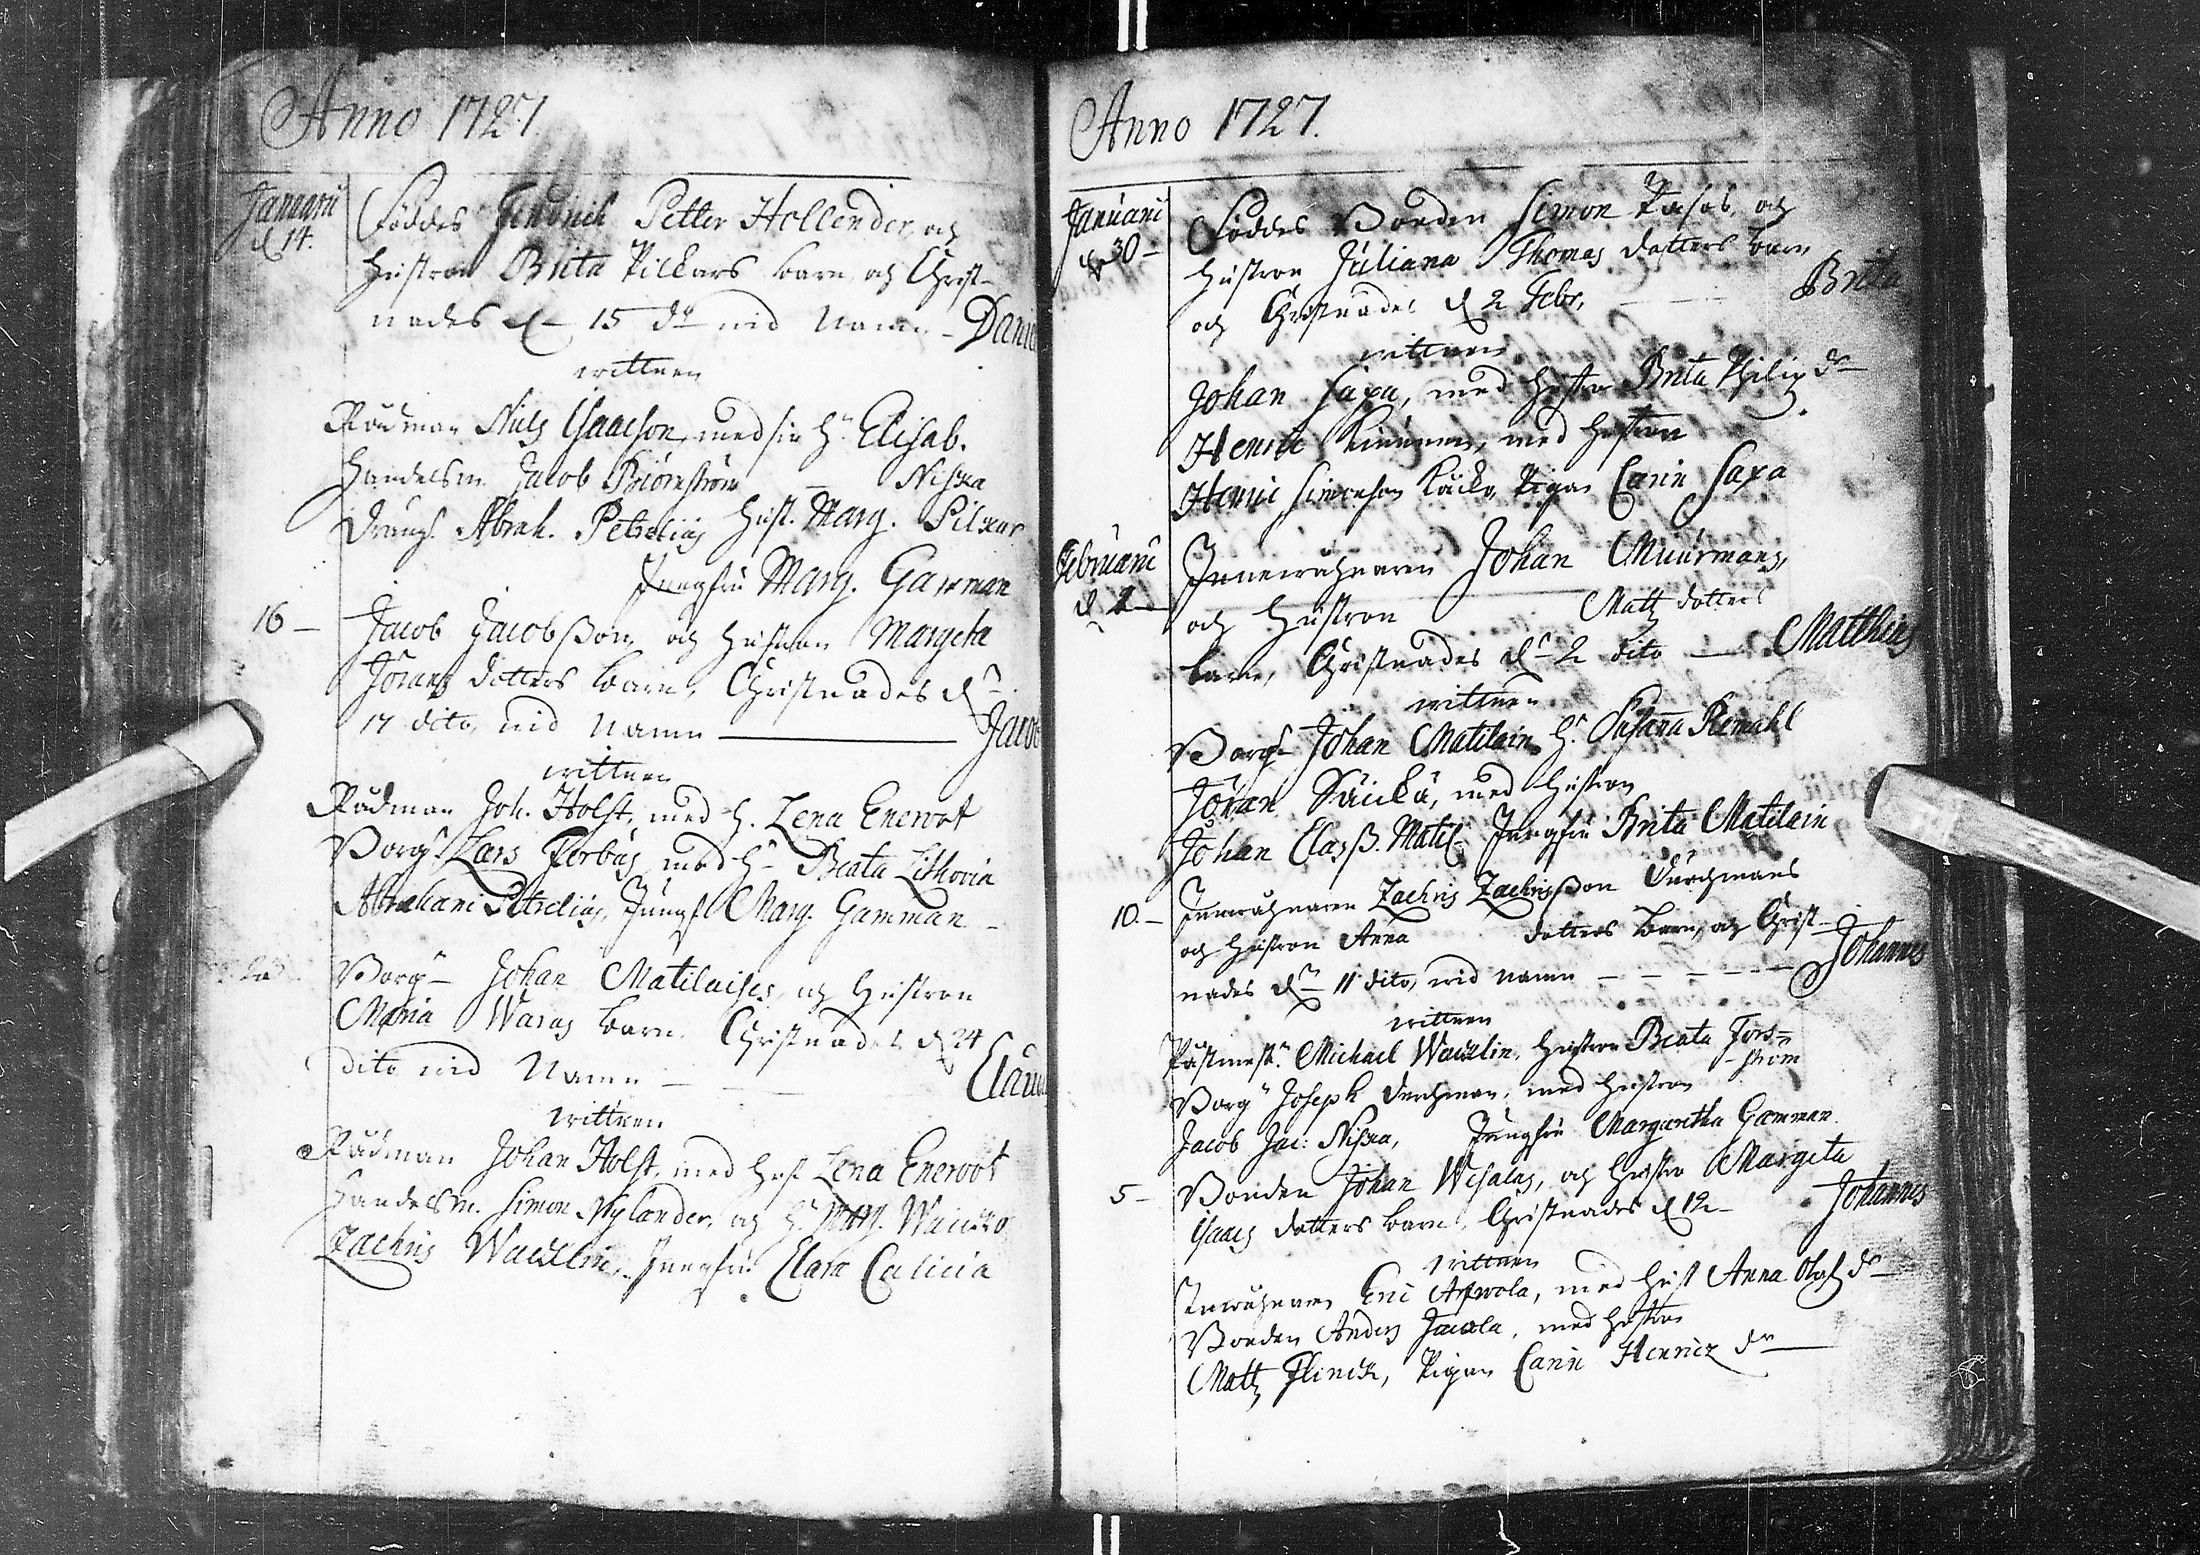 Anno 1727.
Januarii
d 14.
Föddes Hendrich Petter Hollender, och
Hustron Brita Pilkars barn, och Christ-
nades d 15 do vid Namn - Dani
wittnen
Rådman Nils Isaacson, med sin H. Elisab.
Handelsm. Jacob Biörnström Niska
Abrah. Petrelius Hust. Marg. Pilkar
Jungfru Marg. Gamman
16 - Jacob Jacobsson och Hustron Margeta
Jörans dotters barn, Christnades d
17 dito, vid Namn Jacob
wittnen
Rådman Joh. Holst, med H. Lena Enewot
Borg. Lars Forbus, med H. Beata Lithovia
Abraham Petrelius, Jungf. Marg. Gamman
Borg. Johan Matilaises, och Hustron
Maria Waras barn. Christnades d 24
dito vid Namn - Clau
wittnen
Rådman Johan Holst, med Hust Lena Enewot
Handelsm. Simon Nylander, och H. Wainio
Zachris Wacklin, Jungfru Clara Calicia
Anno 1727.
Januarii
d 30 -
Föddes Bonden Simon Pasos, och
Hustron Juliana Thomas dotters barn
och Christnades d 2 Febr. Brita
wittnen
Johan Saxa, med Hustru Brita Philip dr
Henric Kinnunen, med Hustron
Henric Simonson Pigan Carin Saxa
Februarii
d 1
Innewånaren Johan Muurmans,
och Hustron Matz dotters
barn, Christnades d 2 dito - Matthias
wittnen
Borg. Johan Matilain, H. Susanna Remahl
Jöran Säickä, med Hustron
Johan Class. Matil. Jungfru Brita Matilain
10. - Innewånaren Zachris Zachrisson Curchmans
och Hustron Anna dotters barn, och Christ-
nades d 11 dito, vid namn - Johannes
wittnen
Påstmest. Michael Wacklin, Hustron Beata Fors=
ström
Borg. Joseph Curchman, med Hustron
Jacob Jac: Niska, Jungfru Margaretha Gamman.
5 - Bonden Johan Wesalas, och Hustru Margeta
Isaacs dotters barn, Christnades d 12 - Johannes
wittnen
Innewånaren Eric Arfwola, med Hust Anna Olofs dr
Bonden Anders Jackla, med Hustron
Matz Flinck, Pigan Carin Henricz dr